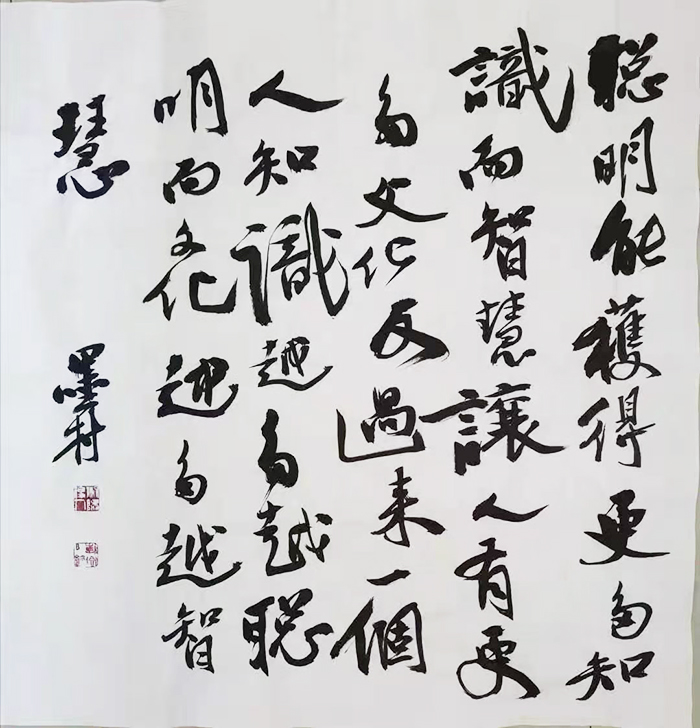 聪明能獲得更多知
識而智慧讓人有更
多文化反過来一個
人知識越多越聪
明而文化越多越智
慧
墨村